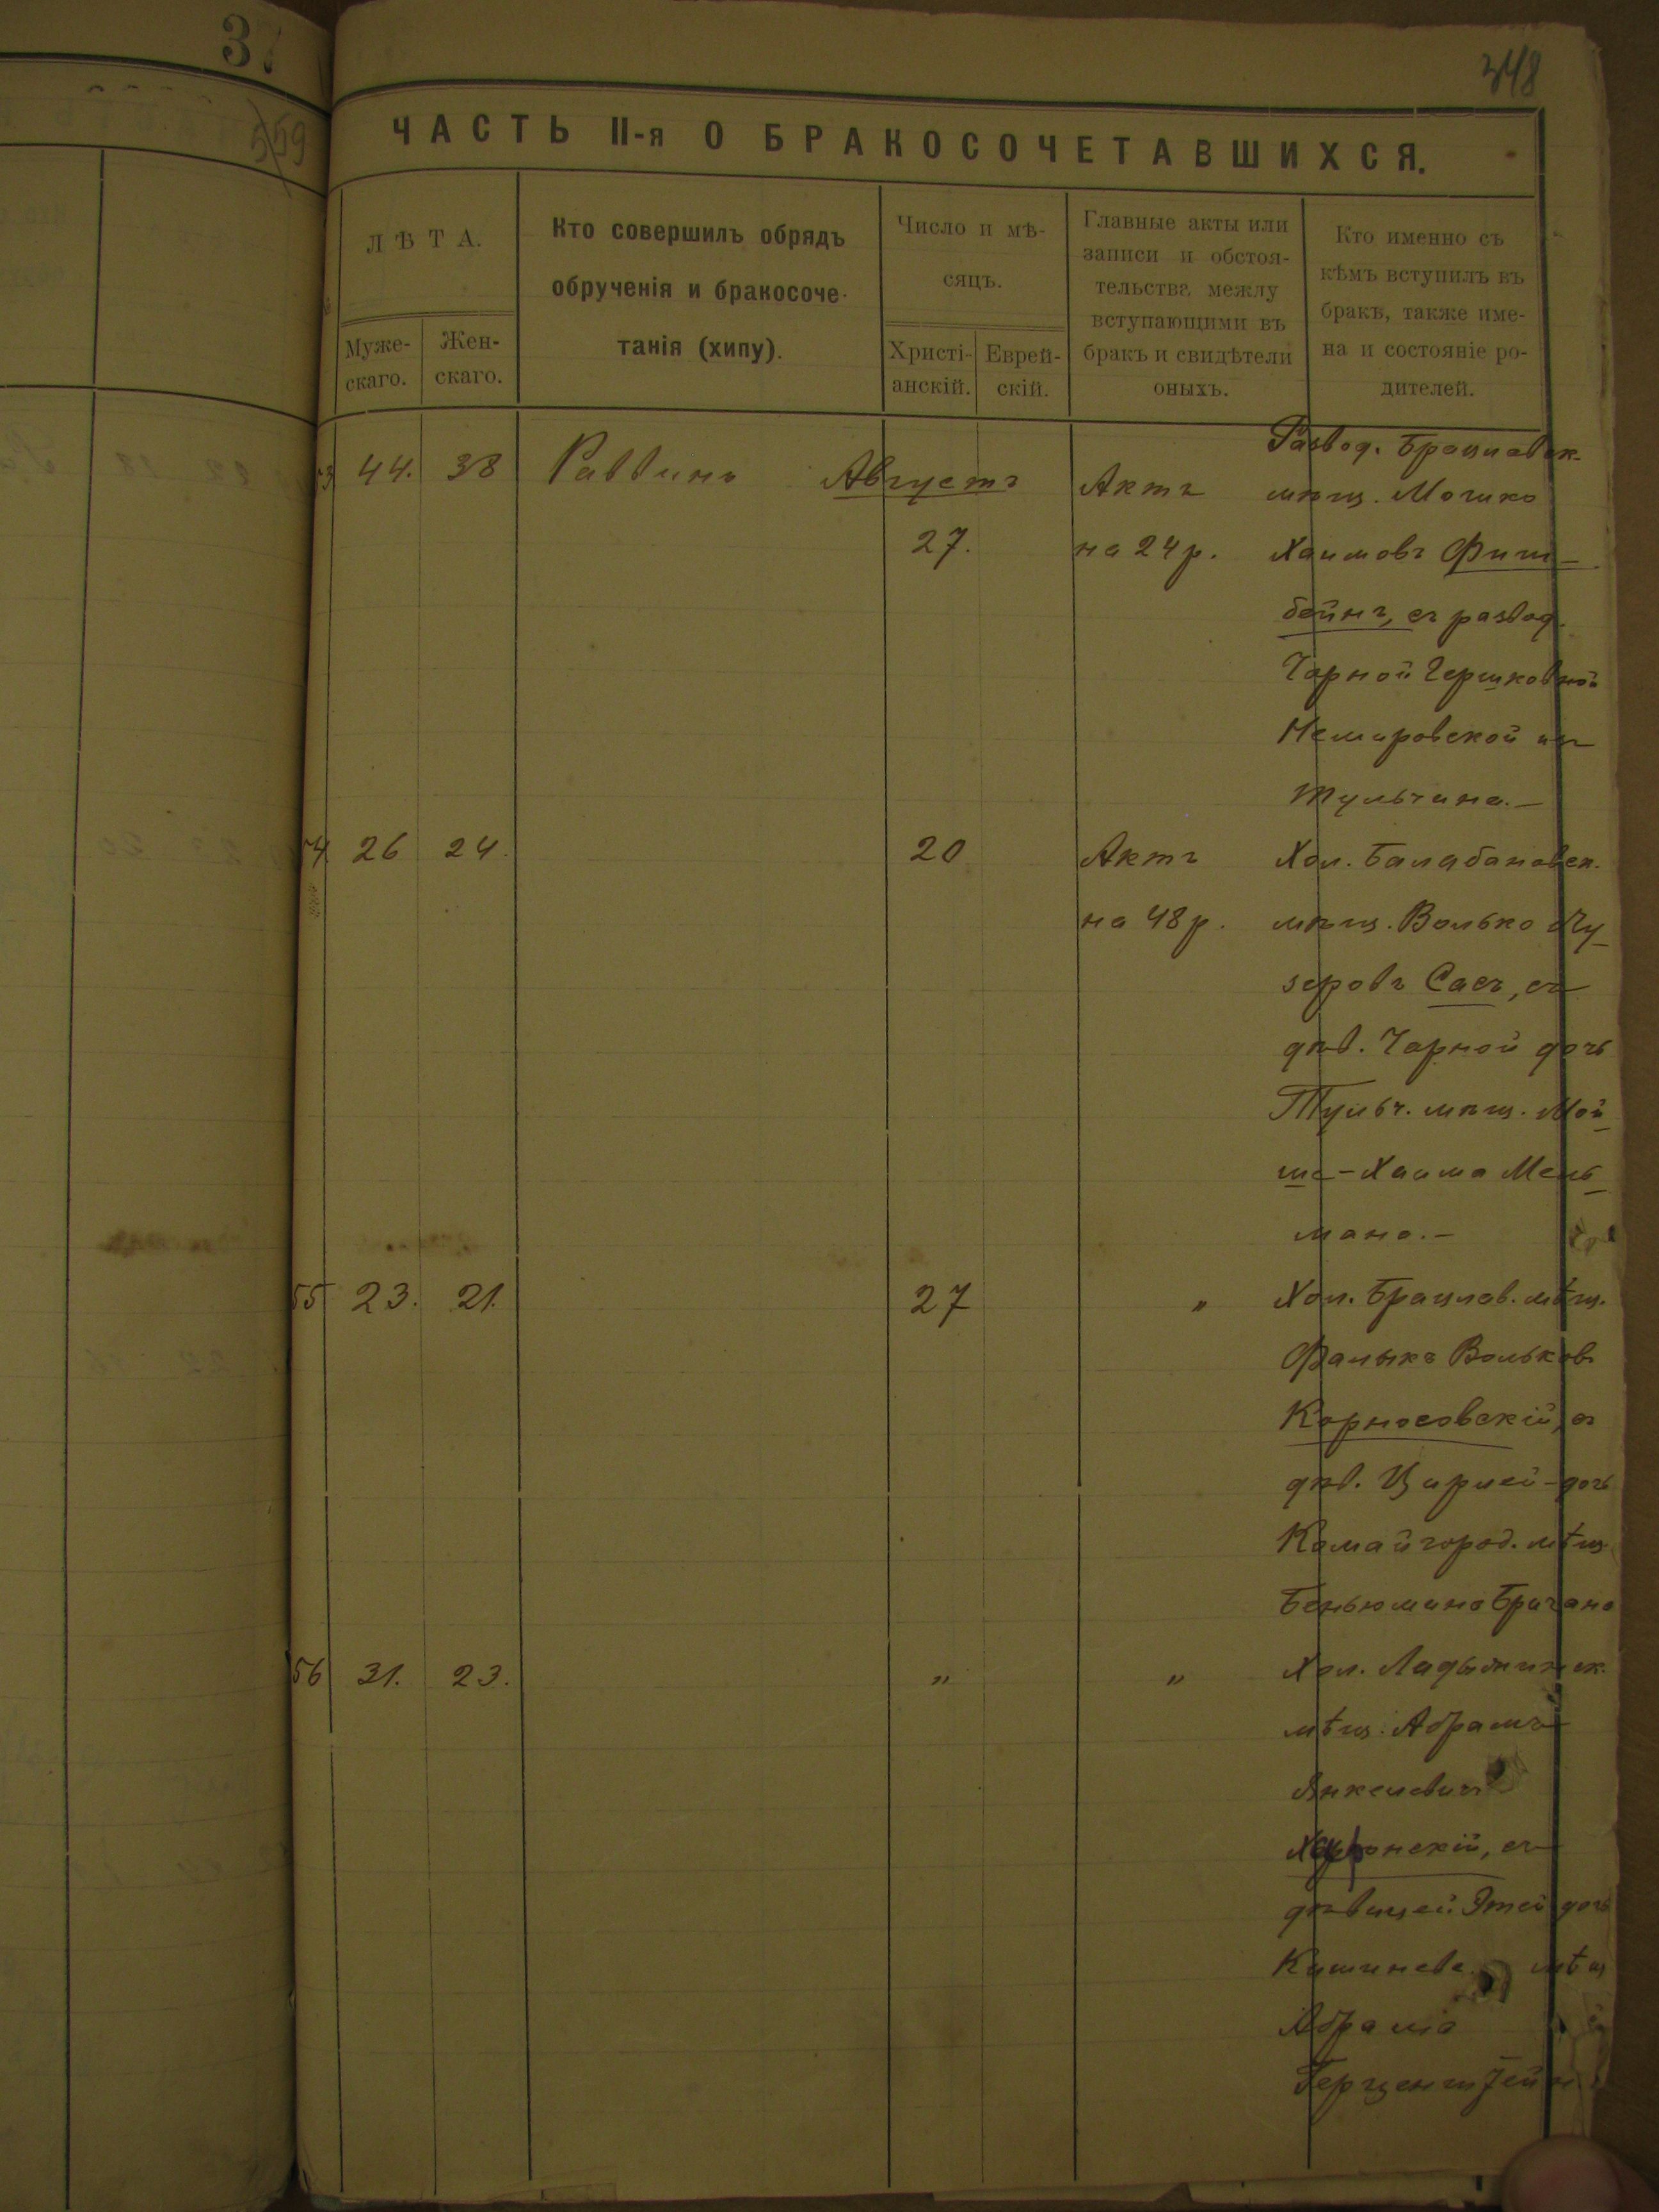 37
559
348
ЧАСТЬ II-я О БРАКОСОЧЕТАВШИХСЯ.
ЛѢТА.
Муже-
скаго.
Жен-
скаго.
Кто совершилъ обрядъ
обрученія и бракосоче-
танія (хипу).
Число и мѣ-
сяцъ.
Христі-
анскій.
Еврей-
скій.
Главные акты или
записи и обстоя-
тельства между
вступающими въ
бракъ и свидѣтели
оныхъ.
Кто именно съ
кѣмъ вступилъ въ
бракъ, также име-
на и состояніе ро-
дителей.
53 44. 38 Раввинъ Августъ 27. Актъ на 24 р.
Развод. Брацлавск.
мѣщ. Мошко
Хаимовъ Фиш-
бейнъ, съ развод.
Чарной Гершковной
Немировской изъ
Тульчина.—
54 26 24. 20 Актъ на 48 р.
Хол. Балабановск.
мѣщ. Волько
зеровъ Сасъ, съ
дѣв. Чарной дочь
Тульч. мѣщ. Мой-
ше-Хаима Мель-
мана.—
55 23. 21. 27 "
Хол. Брацлав. мѣщ.
Фалыкъ Вольковъ
Корносовскій, съ
дѣв. Цирлей-дочь
Комайгород. мѣщ.
Беньюмина Бричана
56 31. 23. " "
Хол. Ладыжинск.
мѣщ. Абрамъ
Янкелевичъ
Херсонскій, съ
дѣвицей Этей дочь
Кишинев. мѣщ
Абрама
Герценштейн